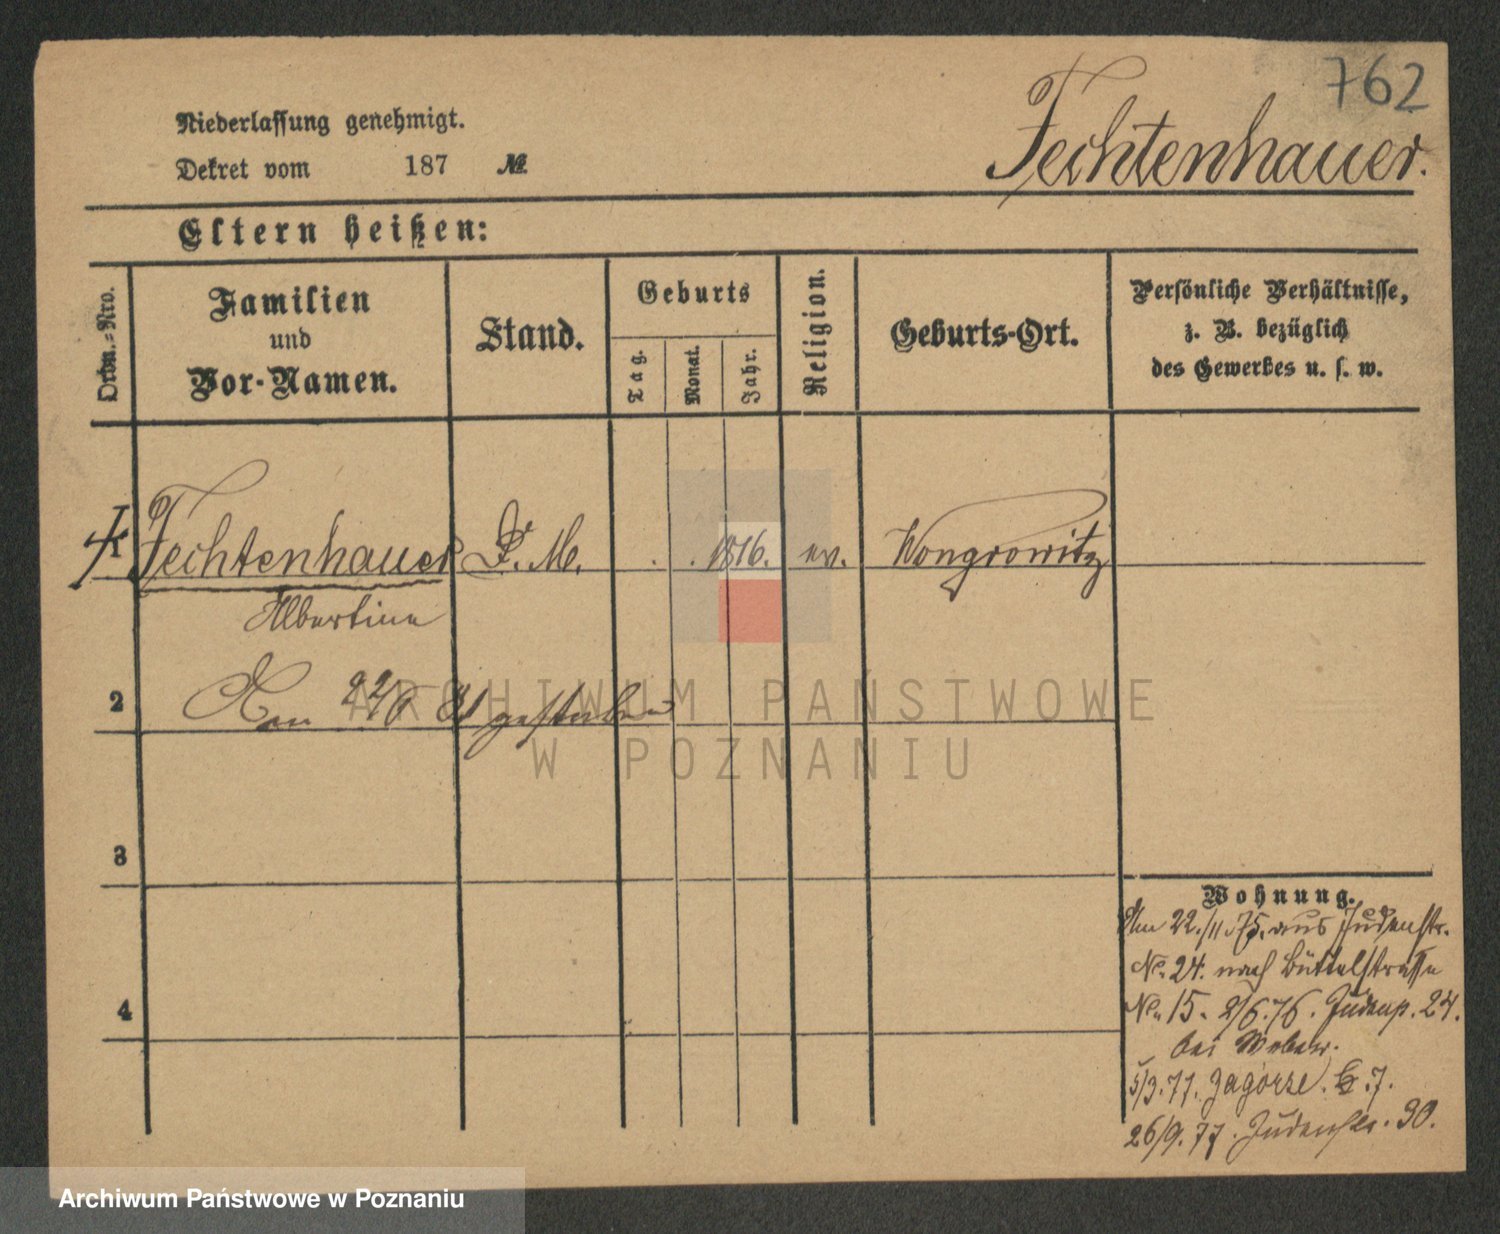 762
Fechtenhauer.
Niederlassung genehmigt.
Dekret vom 187 №
Eltern heißen:
Ordn.-Nro.
Familien
und
Vor-Namen.
Stand.
Geburts
Tag.
Monat.
Jahr.
Religion.
Geburts-Ort.
Persönliche Verhältnisse,
z. B. bezüglich
des Gewerbes u. s. w.
Fechtenhauer D. M. . . 1816. ev. Wongrowitz
Albertine
2 Am 22/6 81 gestorben
3
4
Wohnung.
Am 22./11.75. aus Judenstr.
No. 24. nach Büttelstrasse
No. 15. 2/6.76. Judenstr. 24.
bei Weber.
5/3.77. Zagorze 7.
26/9.77. Judenstr. 30.
ARCHIWUM PAŃSTWOWE
W POZNANIU
Archiwum Państwowe w Poznaniu